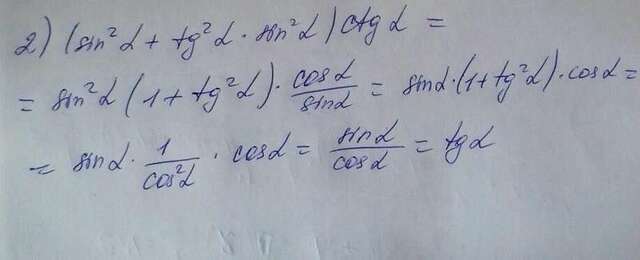 2) (sin²α + tg²α · sin²α) ctg α =
= sin²α (1 + tg²α) · cosα/sinα = sinα · (1 + tg²α) · cosα =
= sinα · 1/cos²α · cosα = sinα/cosα = tgα